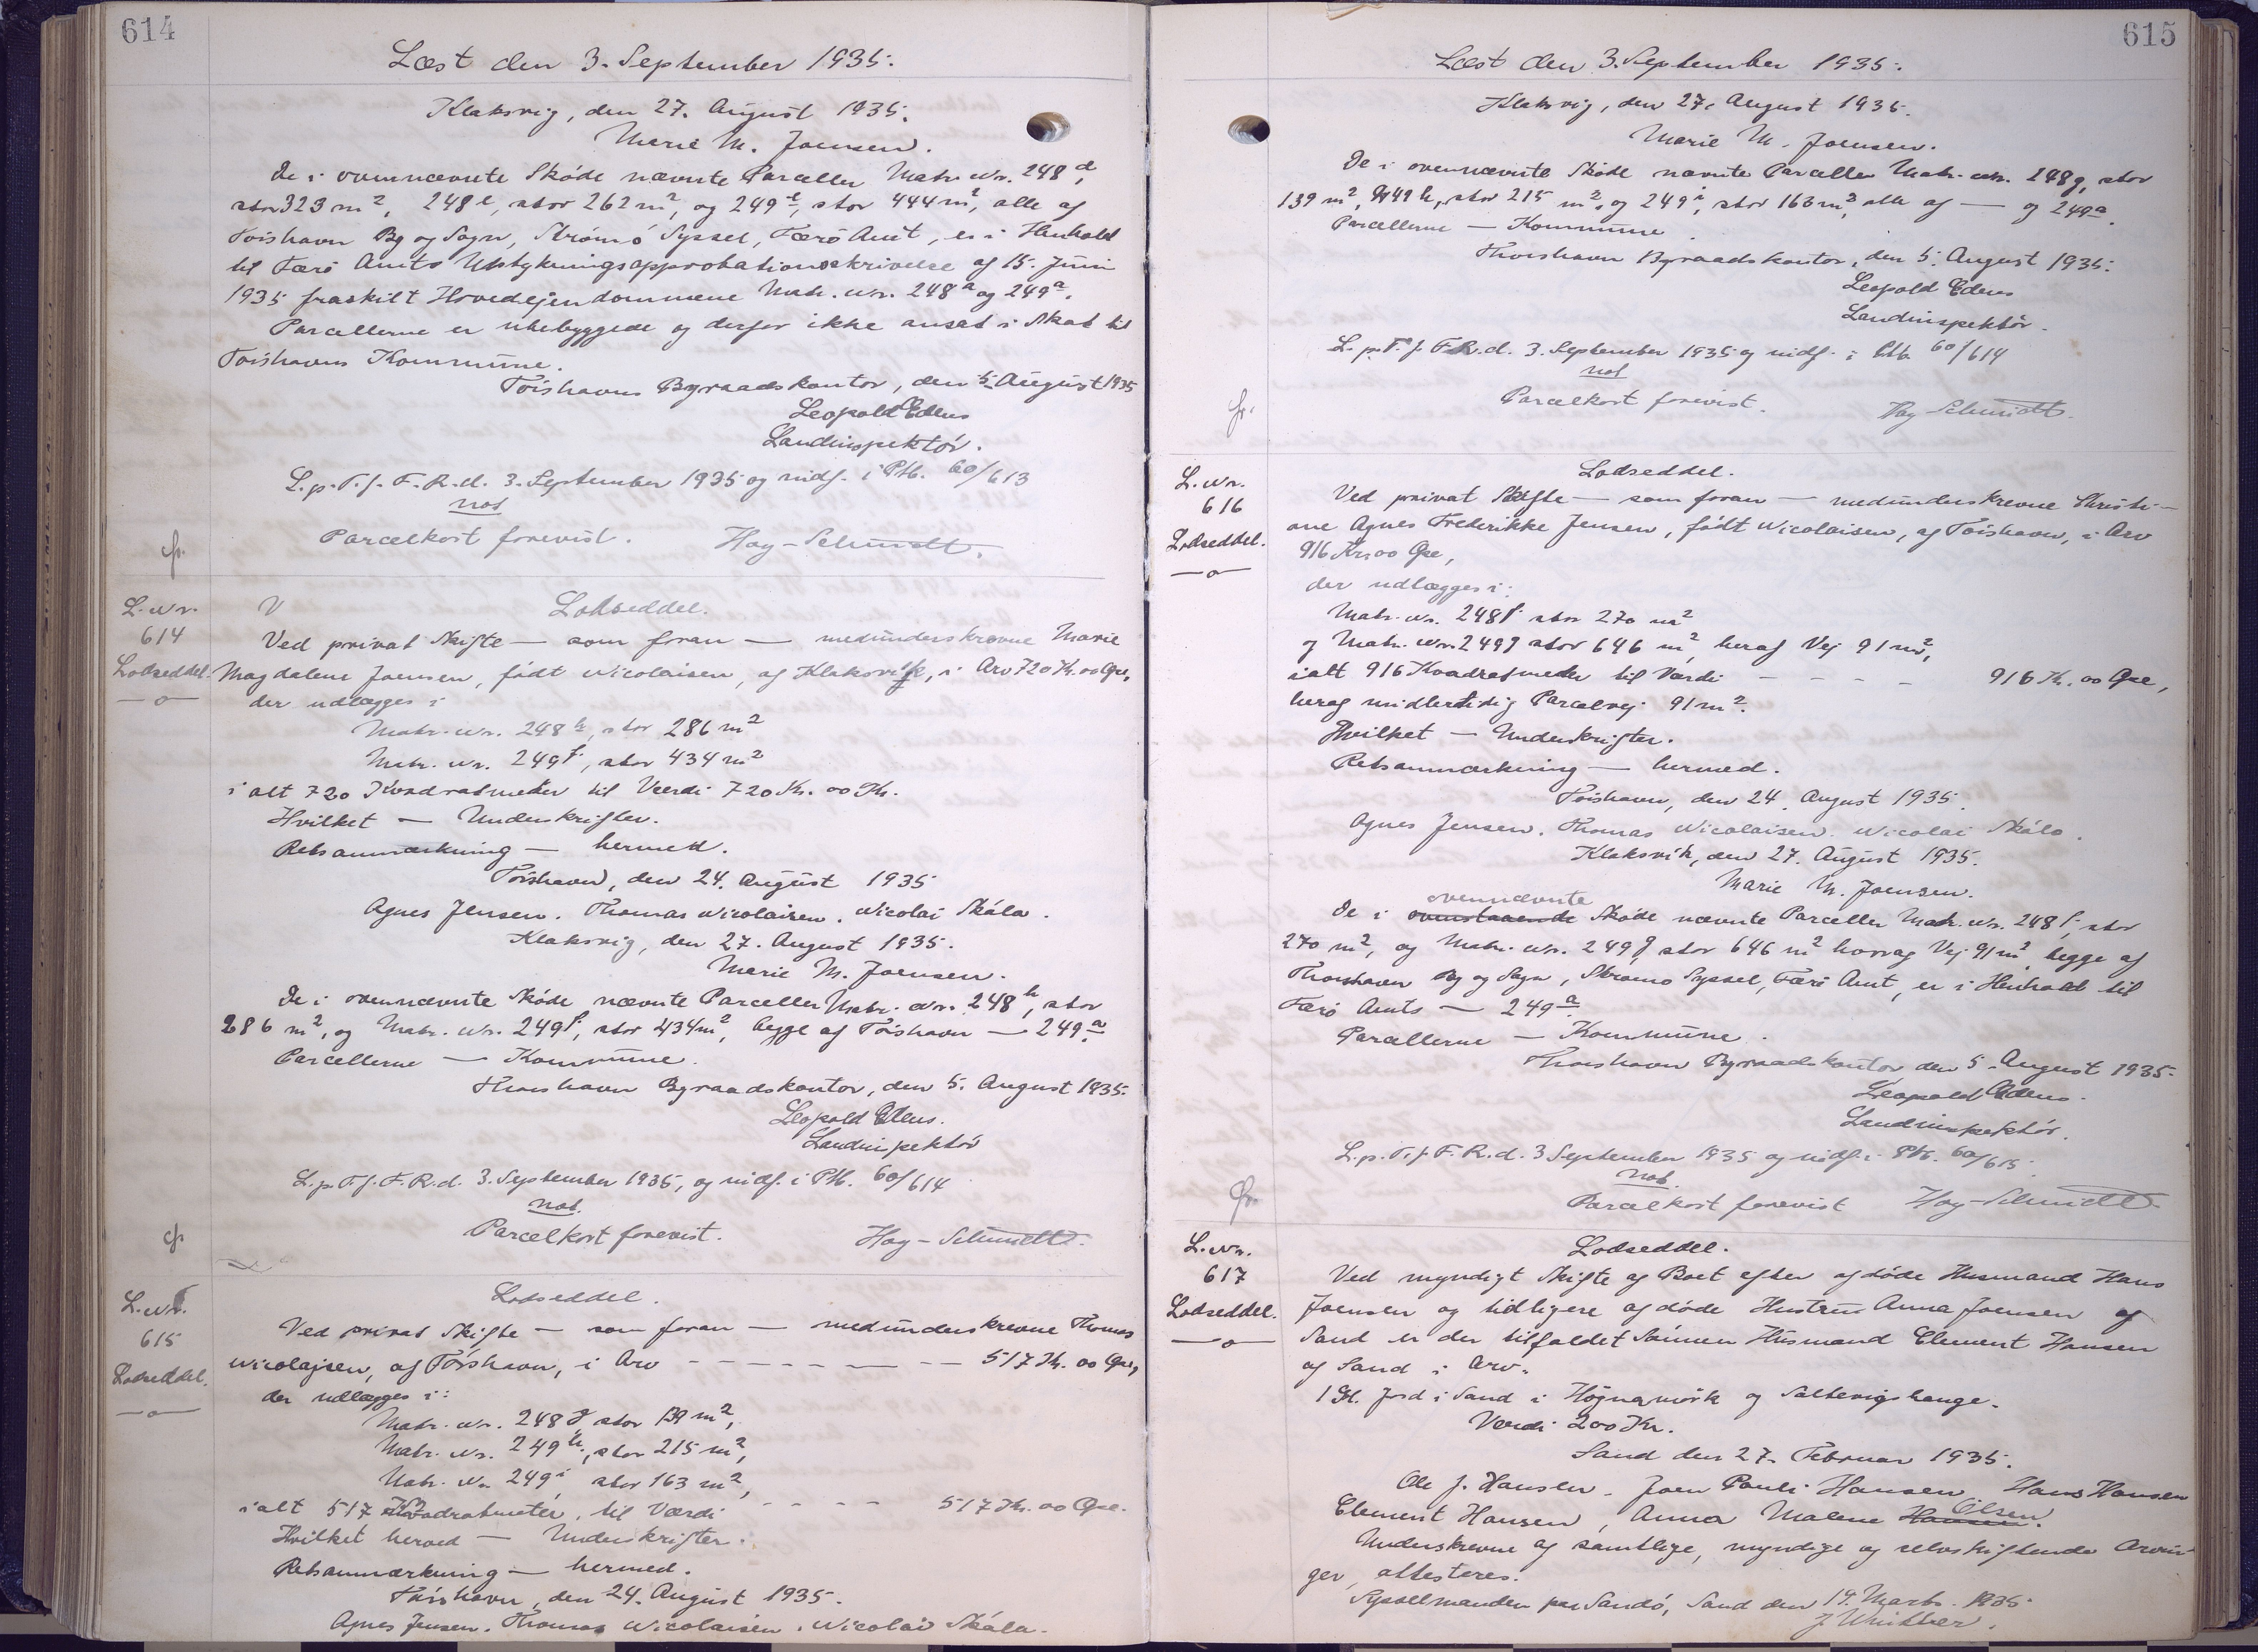 614
Læst den 3. September 1935.
Klaksvig, den 27. August 1935.
Marie M. Joensen.
De i ovennævnte Skøde nævnte Parceller Matr. Nr. 248 d,
stor 323 m², 248 e, stor 262 m², og 249 e, stor 444 m², alle af
Torshavn By og Sogn, Strømø Syssel, Færø Amt, er i Henhold
til Færø Amts Udstykningsapprobationsskrivelse af 15. Juni
1935 fraskilt Hovedejendommene Matr. Nr. 248 a og 249 a.
Parcellerne er ubebyggede og derfor ikke ansat i Skat til
Torshavns Kommune.
Torshavns Byraadskontor, den 5. August 1935
Leopold Edens
Landinspektør.
L. p. T. f. F. R. d. 3. September 1935 og indf. i Ptb. 60/613
not
Parcelkort forevist. Hay-Schmidt.
L. Nr.
614
Lodseddel.
—o—
V Lodseddel.
Ved privat Skifte — som foran — medunderskrevne Marie
Magdalene Joensen, født Nicolaisen, af Klaksvik, i Arv 720 Kr. 00 Øre,
der udlægges i
Matr. Nr. 248 h, stor 286 m²
Matr. Nr. 249 f, stor 434 m²
i alt 720 Kvadratmeter til Værdi 720 Kr. 00 Kr.
Hvilket — Underskrifter.
Retsanmærkning — hermed.
Torshavn, den 24. August 1935
Agnes Jensen. Thomas Nicolaisen. Nicolai Skála.
Klaksvig, den 27. August 1935.
Marie M. Joensen.
De i ovennævnte Skøde nævnte Parceller Matr. Nr. 248 h, stor
286 m², og Matr. Nr. 249 f, stor 434 m², begge af Torshavn — 249 a.
Parcellerne — Kommune.
Thorshavn Byraadskontor, den 5. August 1935.
Leopold Edens.
Landinspektør
L. p. T. f. F. R. d. 3. September 1935, og indf. i Ptb. 60/614
not.
Parcelkort forevist. Hay-Schmidt.
L. Nr.
615
Lodseddel.
—o—
Lodseddel.
Ved privat Skifte — som foran — medunderskrevne Thomas
Nicolajsen, af Torshavn, i Arv - - - - - - - - 517 Kr. 00 Øre,
der udlægges i:
Matr. Nr. 248 g stor 139 m²,
Matr. Nr. 249 h, stor 215 m²,
Matr. Nr 249 i, stor 163 m²,
ialt 517 Kvadratmeter, til Værdi - - - - 517 Kr. 00 Øre.
Hvilket herved — Underskrifter.
Retsanmærkning — hermed.
Torshavn, den 24. August 1935.
Agnes Jensen. Thomas Nicolaisen. Nicolai Skála.
615
Læst den 3. September 1935.
Klaksvig, den 27. August 1935.
Marie M. Joensen.
De i ovennævnte Skøde nævnte Parceller Matr. Nr. 248 g, stor
139 m², 249 h, stor 215 m², og 249 i, stor 163 m², alle af — og 249 a.
Parcellerne — Kommune.
Thorshavn Byraadskontor, den 5. August 1935.
Leopold Edens
Landinspektør.
L. p. T. f. F. R. d. 3. September 1935 og indf. i Ptb. 60/614
not
Parcelkort forevist. Hay Schmidt.
L. Nr.
616
Lodseddel.
—o—
Lodseddel.
Ved privat Skifte — som foran — medunderskrevne Christi-
ane Agnes Frederikke Jensen, født Nicolaisen, af Torshavn, i Arv
916 Kr. 00 Øre,
der udlægges i:
Matr. Nr. 248 f. stor 270 m²
og Matr. Nr. 249 g stor 646 m², heraf Vej 91 m²,
ialt 916 Kvadratmeter til Værdi - - - - 916 Kr. 00 Øre,
heraf midlertidig Parcelvej 91 m².
Hvilket — Underskrifter.
Retsanmærkning — hermed.
Torshavn, den 24. August 1935.
Agnes Jensen. Thomas Nicolaisen. Nicolai Skála.
Klaksvik, den 27. August 1935.
Marie M. Joensen.
ovennævnte
De i ovenstaaende Skøde nævnte Parceller Matr. Nr. 248 f, stor
270 m², og Matr. Nr. 249 g stor 646 m² hvoraf Vej 91 m², begge af
Thorshavn By og Sogn, Strømø Syssel, Færø Amt, er i Henhold til
Færø Amts — 249 a.
Parcellerne — Kommune.
Thorshavn Byraadskontor den 5. August 1935.
Leopold Edens.
Landinspektør.
L. p. T. f. F. R. d. 3 September 1935 og indf. i Ptb. 60/615.
not.
Parcelkort forevist Hay-Schmidt
L. Nr.
617
Lodseddel.
—o—
Lodseddel.
Ved myndigt Skifte af Boet efter afdøde Husmand Hans
Joensen og tidligere afdøde Hustru Anna Joensen af
Sand er der tilfaldet Sønnen Husmand Clement Hansen
af Sand i Arv.
1 Gl. Jord i Sand i Høgnamørk og Saltevigshauge.
Værdi 200 Kr.
Sand den 27. Februar 1935.
Ole J. Hansen. Joen Pauli Hansen Hans Hansen
Clement Hansen, Anna Malene Hansen Olsen.
Underskrevne af samtlige, myndige og selvskiftende Arvin-
ger, attesteres.
Sysselmanden paa Sandø, Sand den 14. Marts. 1935.
J. Winther.